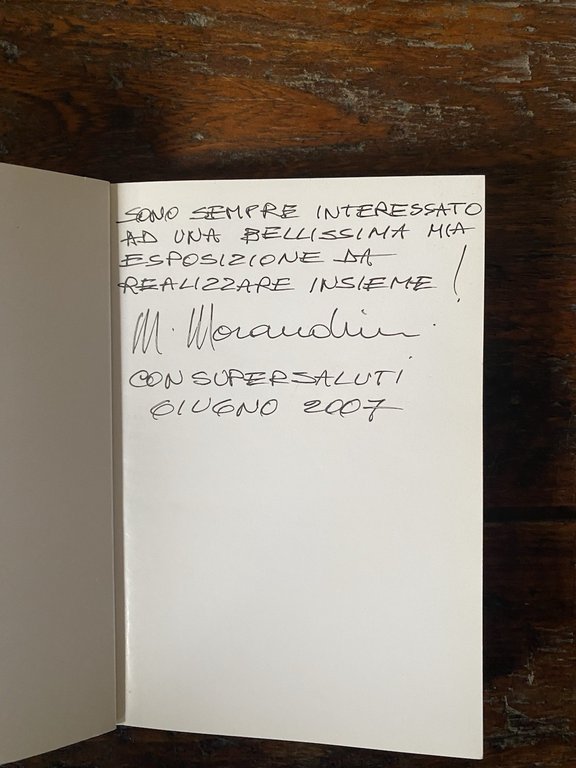 SONO SEMPRE INTERESSATO
AD UNA BELLISSIMA MIA
ESPOSIZIONE DA
REALIZZARE INSIEME !
M. Morandini.
CON SUPERSALUTI
GIUGNO 2007